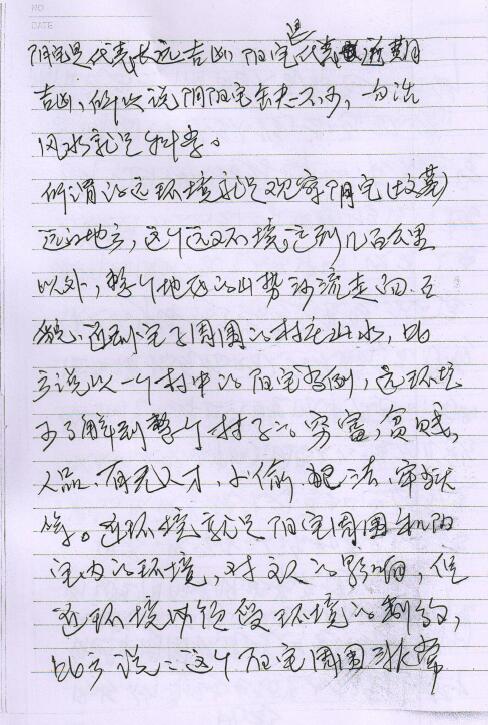 NO
DATE
阴宅是代表长远吉凶，阳宅是代表近期
吉凶，所以说阴阳宅缺一不少，一句话
风水就是科学。
所谓的远环境就是观察阴宅（坟墓）
远的地方，这个远环境达到几百公里
以外，整个地区的山势河流走向
貌、近到宅子周围的村庄山水，比
方说以一个村中的阳宅为例，远环境
少了解到整个村子的穷富，贫贱，
人品、有无人才，小偷、犯法、牢狱
等。近环境就是阳宅周围和阳
宅内的环境，对主人的影响，但
近环境必须受环境的制约，
比方说：这个阳宅周围非常